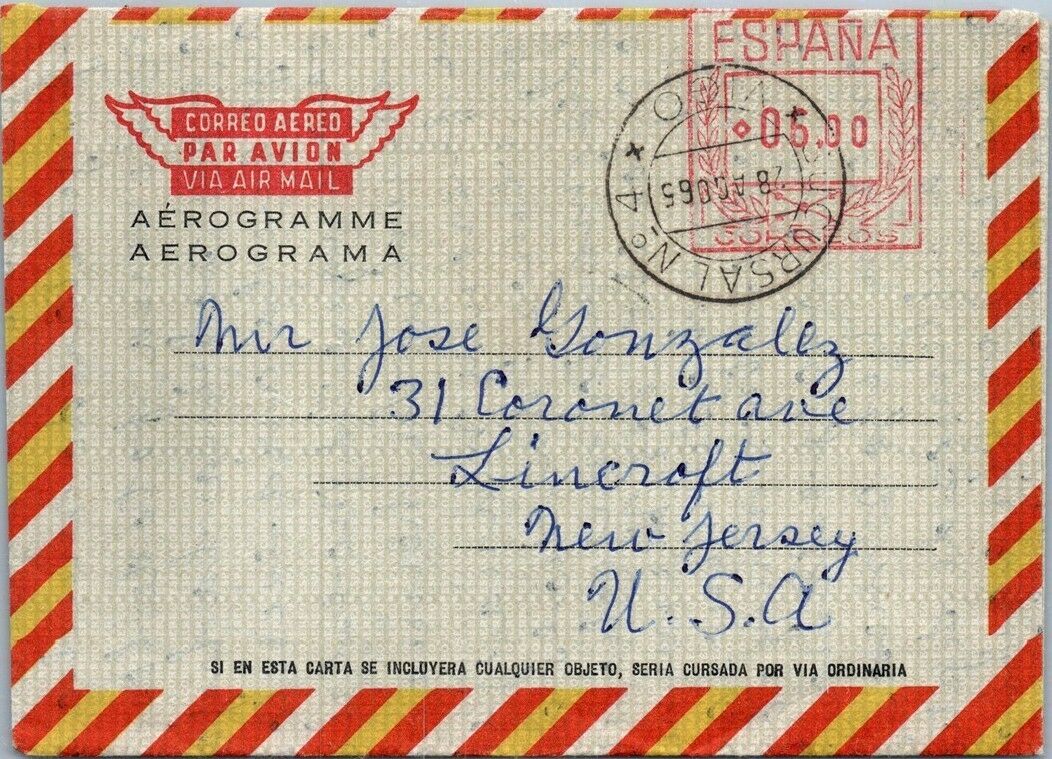 CORREO AEREO
PAR AVION
VIA AIR MAIL
AÉROGRAMME
AEROGRAMA
ESPAÑA
05,00
CORREOS
SUCURSAL Nº 4
VIGO
28 AGO 65
Mr Jose Gonzalez
31 Coronet ave
Lincroft
New Jersey
U.S.A
SI EN ESTA CARTA SE INCLUYERA CUALQUIER OBJETO, SERIA CURSADA POR VIA ORDINARIA